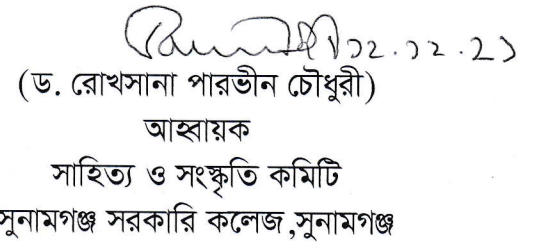 ১২.১২.২১
(ড. রোখসানা পারভীন চৌধুরী)
আহ্বায়ক
সাহিত্য ও সংস্কৃতি কমিটি
সুনামগঞ্জ সরকারি কলেজ,সুনামগঞ্জ